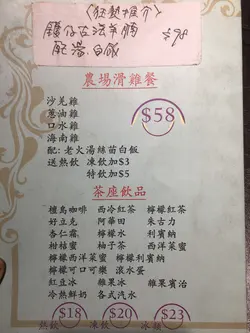 (狂熱推介)
$98
配湯.白飯
農場滑雞餐
沙羌雞
葱油雞
口水雞
海南雞
$58
配: 老火湯絲苗白飯
送熱飲 凍飲加$3
特飲加$5
茶座飲品
檀島咖啡 西冷紅茶 檸檬紅茶
好立克 阿華田 朱古力
杏仁霜 檸檬水 利賓納
柑桔蜜 柚子茶 西洋菜蜜
檸檬西洋菜蜜 檸檬利賓納
檸檬可口可樂 滾水蛋
紅豆冰 雜果冰 雜果賓治
冷熱鮮奶 各式汽水
$18 $20 $23